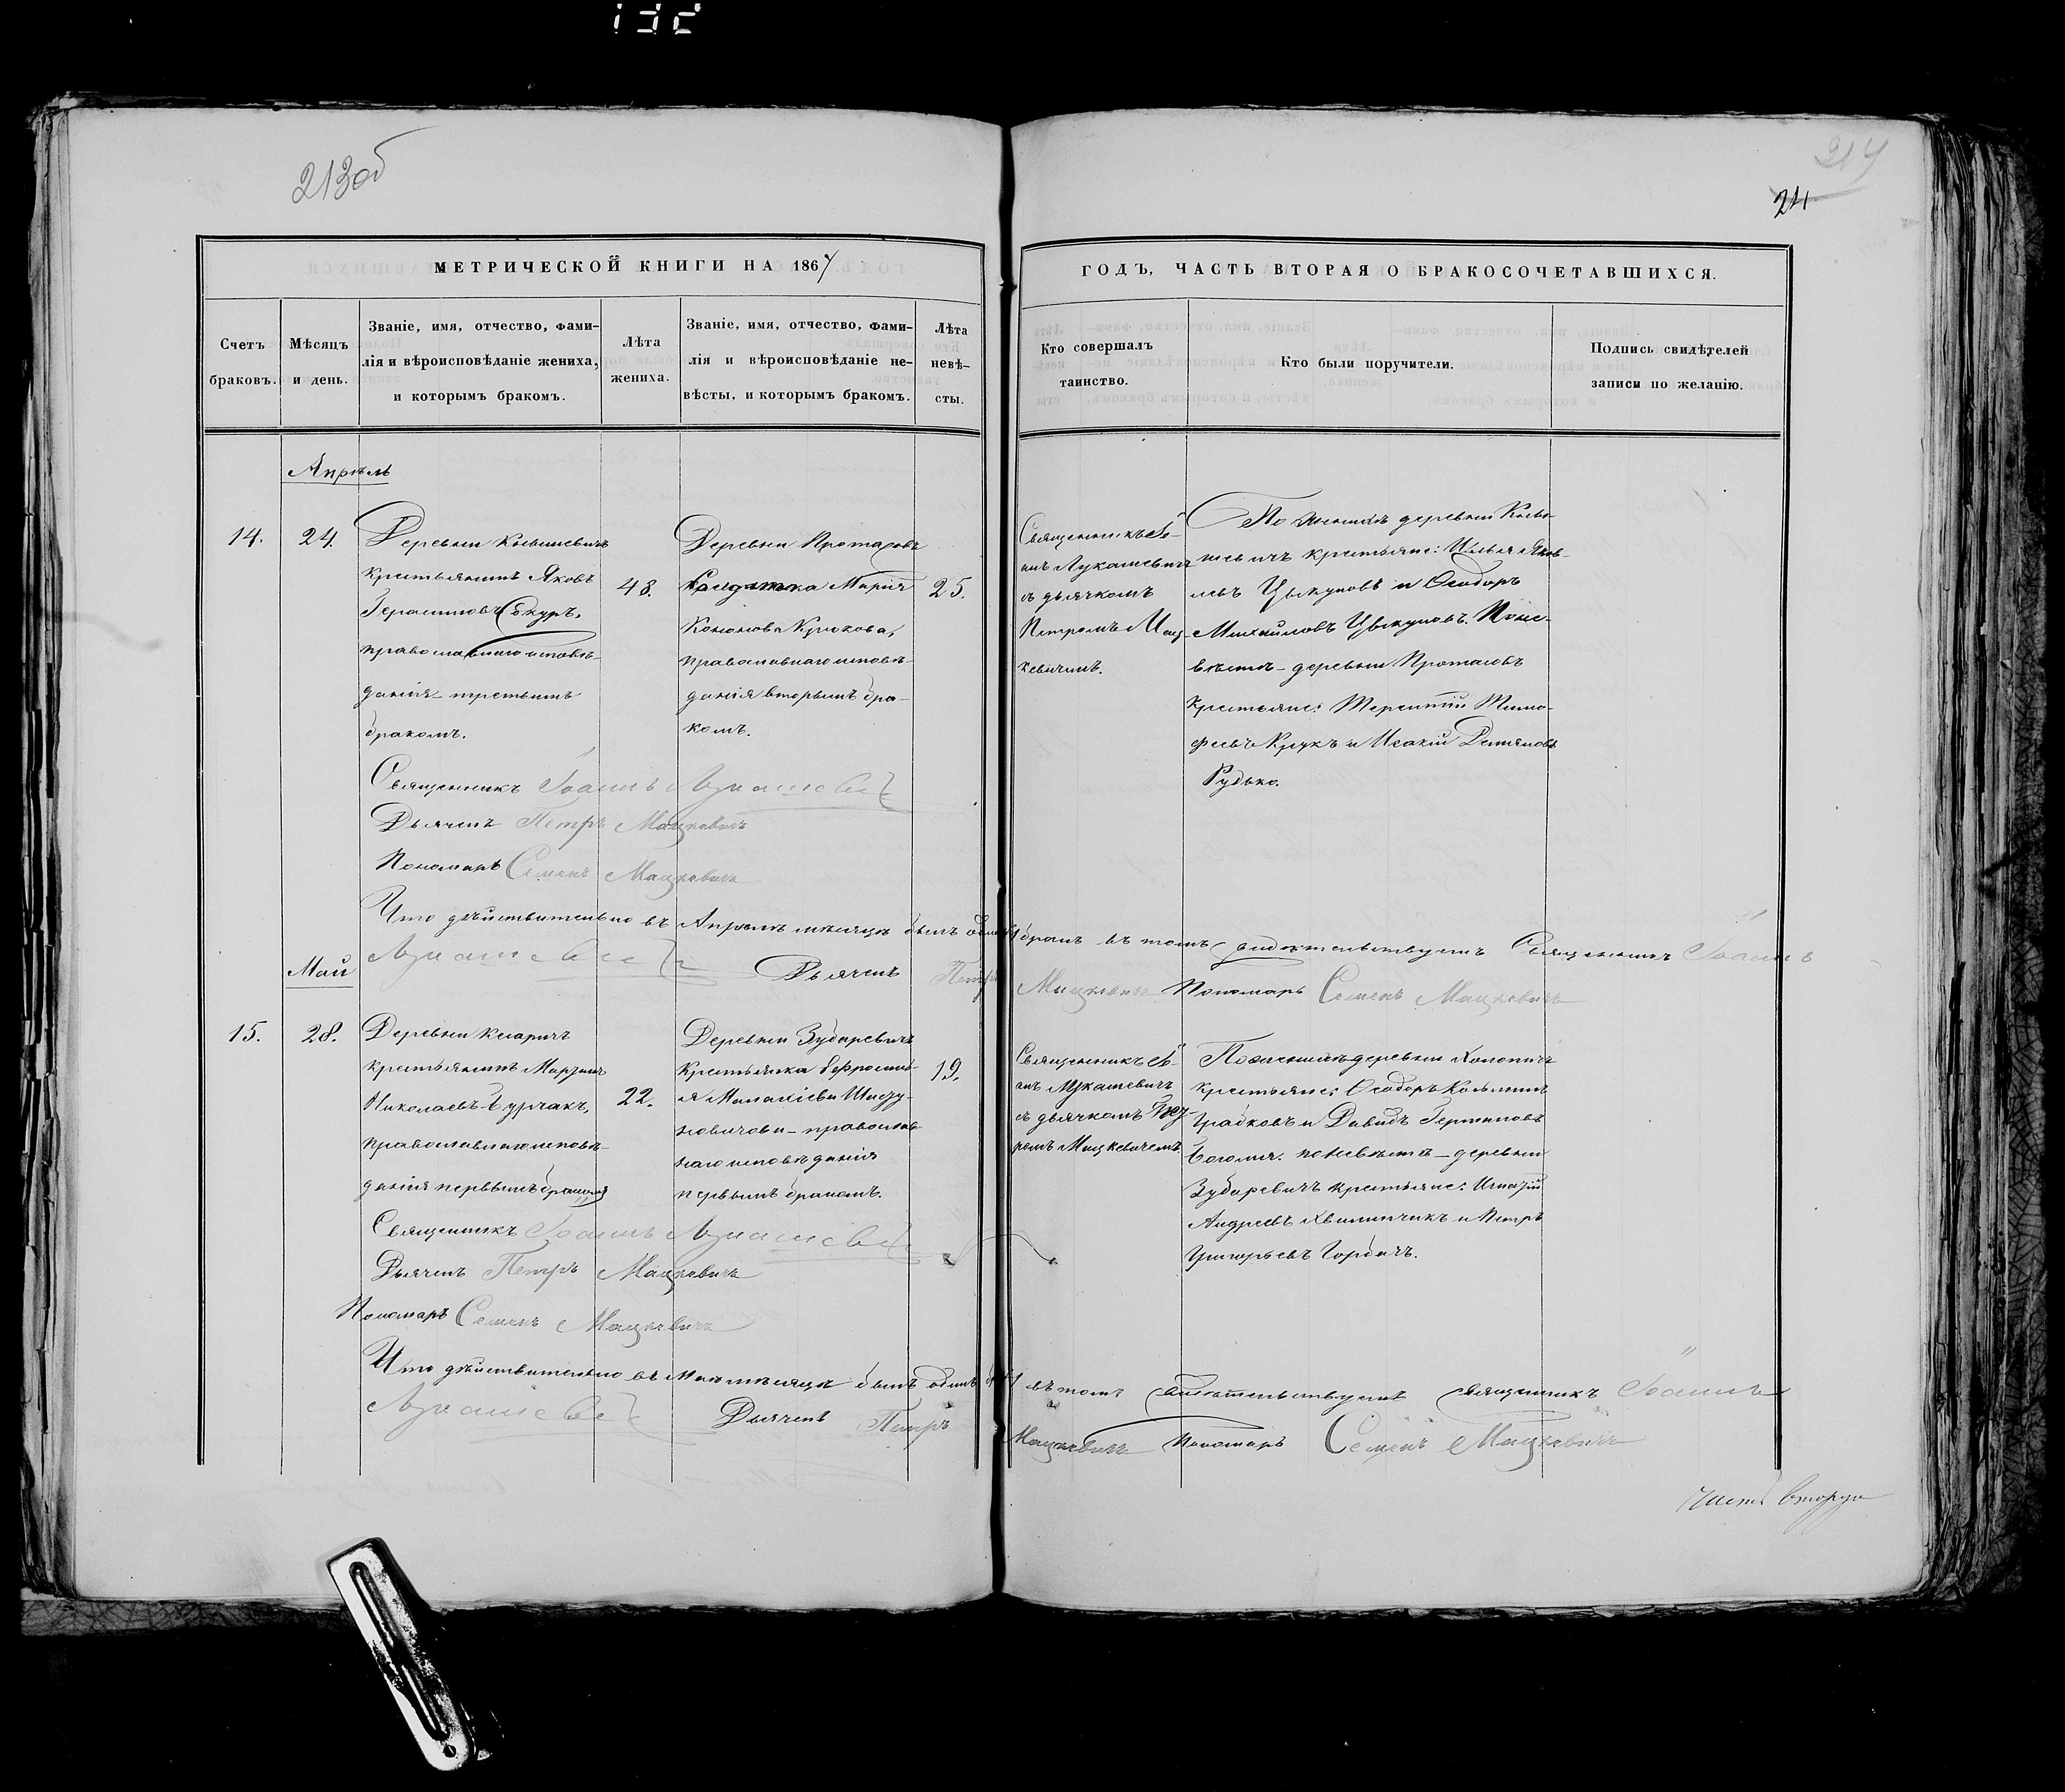 213об
214
24
МЕТРИЧЕСКОЙ КНИГИ НА 1867
ГОДЪ, ЧАСТЬ ВТОРАЯ О БРАКОСОЧЕТАВШИХСЯ.
Счетъ браковъ.
Мѣсяцъ и день.
Званіе, имя, отчество, фами-
лія и вѣроисповѣданіе жениха,
и которымъ бракомъ.
Лѣта
жениха.
Званіе, имя, отчество, фами-
лія и вѣроисповѣданіе не-
вѣсты, и которымъ бракомъ.
Лѣта
невѣ-
сты.
Кто совершалъ
таинство.
Кто были поручители.
Подпись свидѣтелей
записи по желанію.
Апрѣль
14.
24.
Деревни
крестьянинъ Яковъ
Герасимовъ Сокуръ,
православнаго исповѣ-
данія третьимъ
бракомъ.
48.
Деревни Протасовъ
Солдатка Марія
Кононова Крюкова,
православнаго исповѣ-
данія вторымъ бра-
комъ.
25.
Священникъ Іо-
аннъ Лукашевичъ
съ дьячкомъ
Петромъ Мац-
кевичемъ.
По женихѣ деревни
крестьяне: Илья Яков-
левъ Цыкуновъ и Ѳеодоръ
Михайловъ Цыкуновъ. По не-
вѣстѣ - деревни Протасовъ
крестьяне: Терентій Тимо-
феевъ Крукъ и Исакій Демяновъ
Рудько.
Священникъ Іоаннъ Лукашевичъ
Дьячекъ Петръ Мацкевичъ
Пономарь Семенъ Мацкевичъ
Что дѣйствительно въ Апрѣлѣ мѣсяцѣ былъ одинъ бракъ въ томъ свидѣтельствуетъ Священникъ Іоаннъ
Лукашевичъ Дьячекъ Петръ Мацкевичъ Пономарь Семенъ Мацкевичъ
Май
15.
28.
Деревни
крестьянинъ
Николаевъ Бурчакъ,
православнаго исповѣ-
данія первымъ бракомъ
22.
Деревни Зубаревичъ
крестьянка Ефросинь-
я
православ-
наго исповѣданія
первымъ бракомъ.
19.
Священникъ Іо-
аннъ Лукашевичъ
съ дьячкомъ Пет-
ромъ Мацкевичемъ.
По женихѣ деревни
крестьяне: Ѳеодоръ Козьминъ
Грабковъ и Давидъ
по невѣстѣ - деревни
Зубаревичъ крестьяне: Игнатій
Андреевъ и Петръ
Григорьевъ Горбачъ.
Священникъ Іоаннъ Лукашевичъ
Дьячекъ Петръ Мацкевичъ
Пономарь Семенъ Мацкевичъ
Что дѣйствительно въ Маѣ мѣсяцѣ былъ одинъ бракъ въ томъ свидѣтельствуетъ священникъ Іоаннъ
Лукашевичъ Дьячекъ Петръ Мацкевичъ Пономарь Семенъ Мацкевичъ